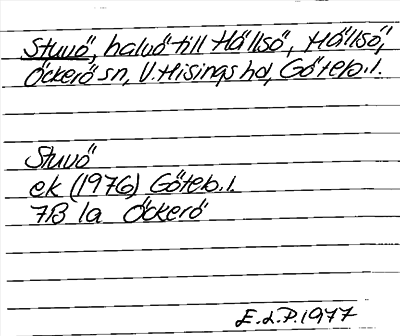 Stuvö, halvö till Hällsö, Hällsö,
Öckerö sn, V. Hisings hd, Göteb. l.
Stuvö
ek (1976) Göteb. l.
7B 1a Öckerö
E. d. P. 1977